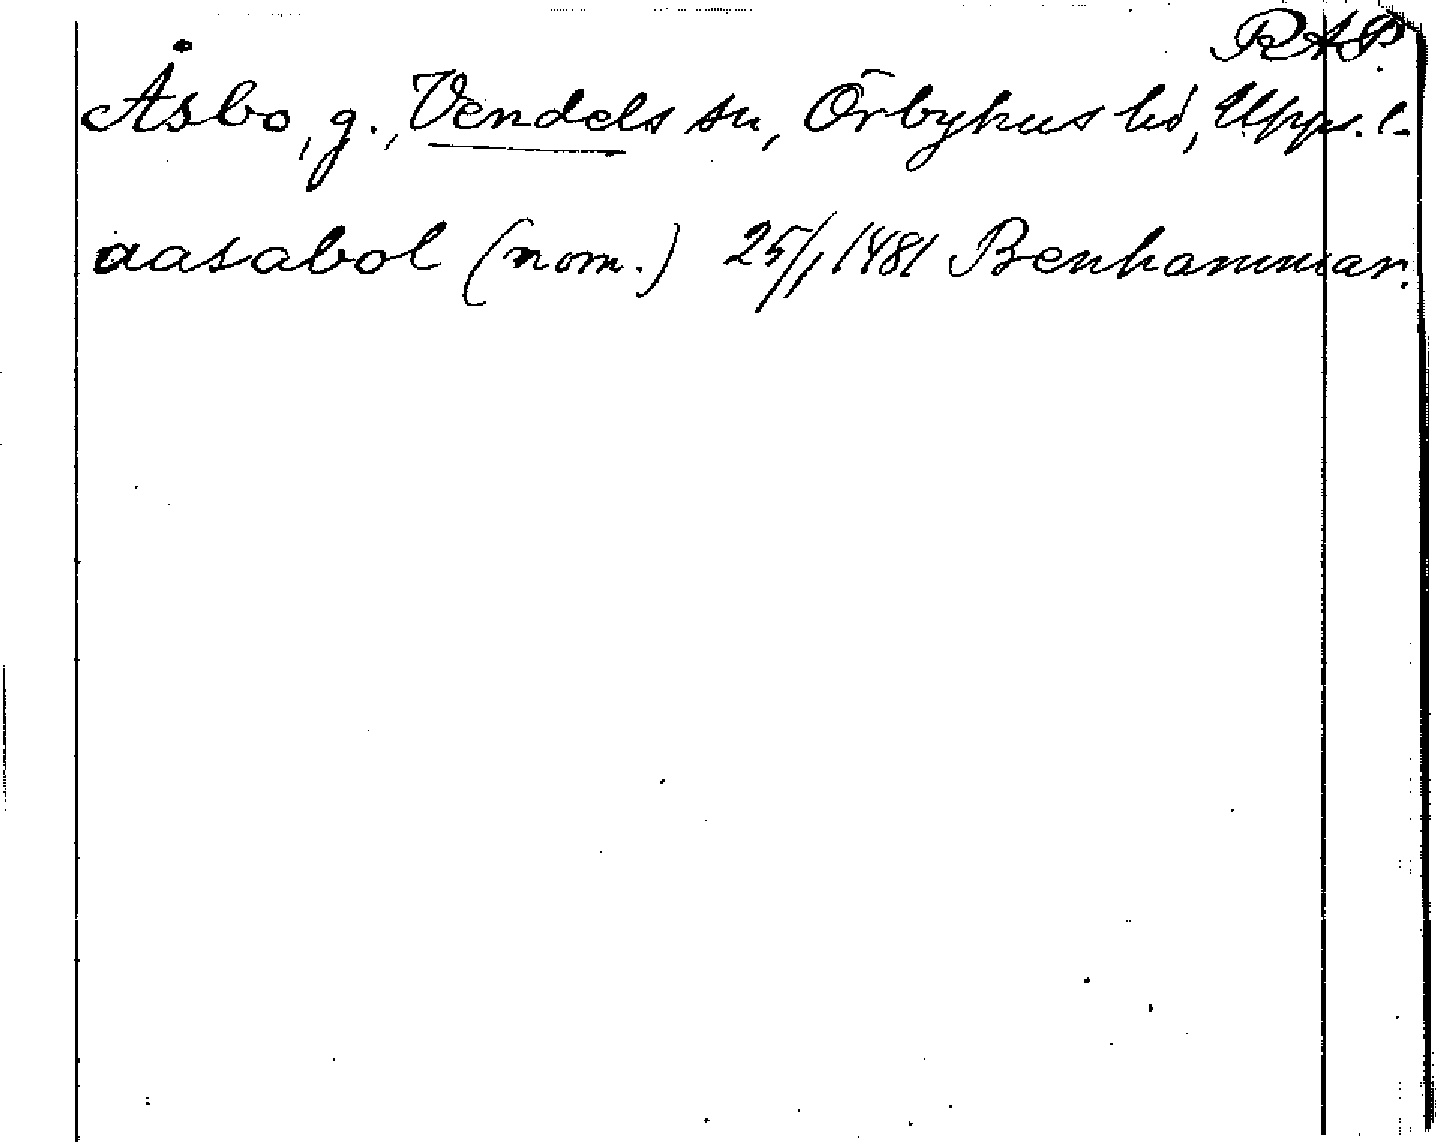 RAP.
Åsbo, g., Vendels sn, Örbyhus hd, Upps. l.
aasabol (nom.) 25/1 1481 Benhammar.